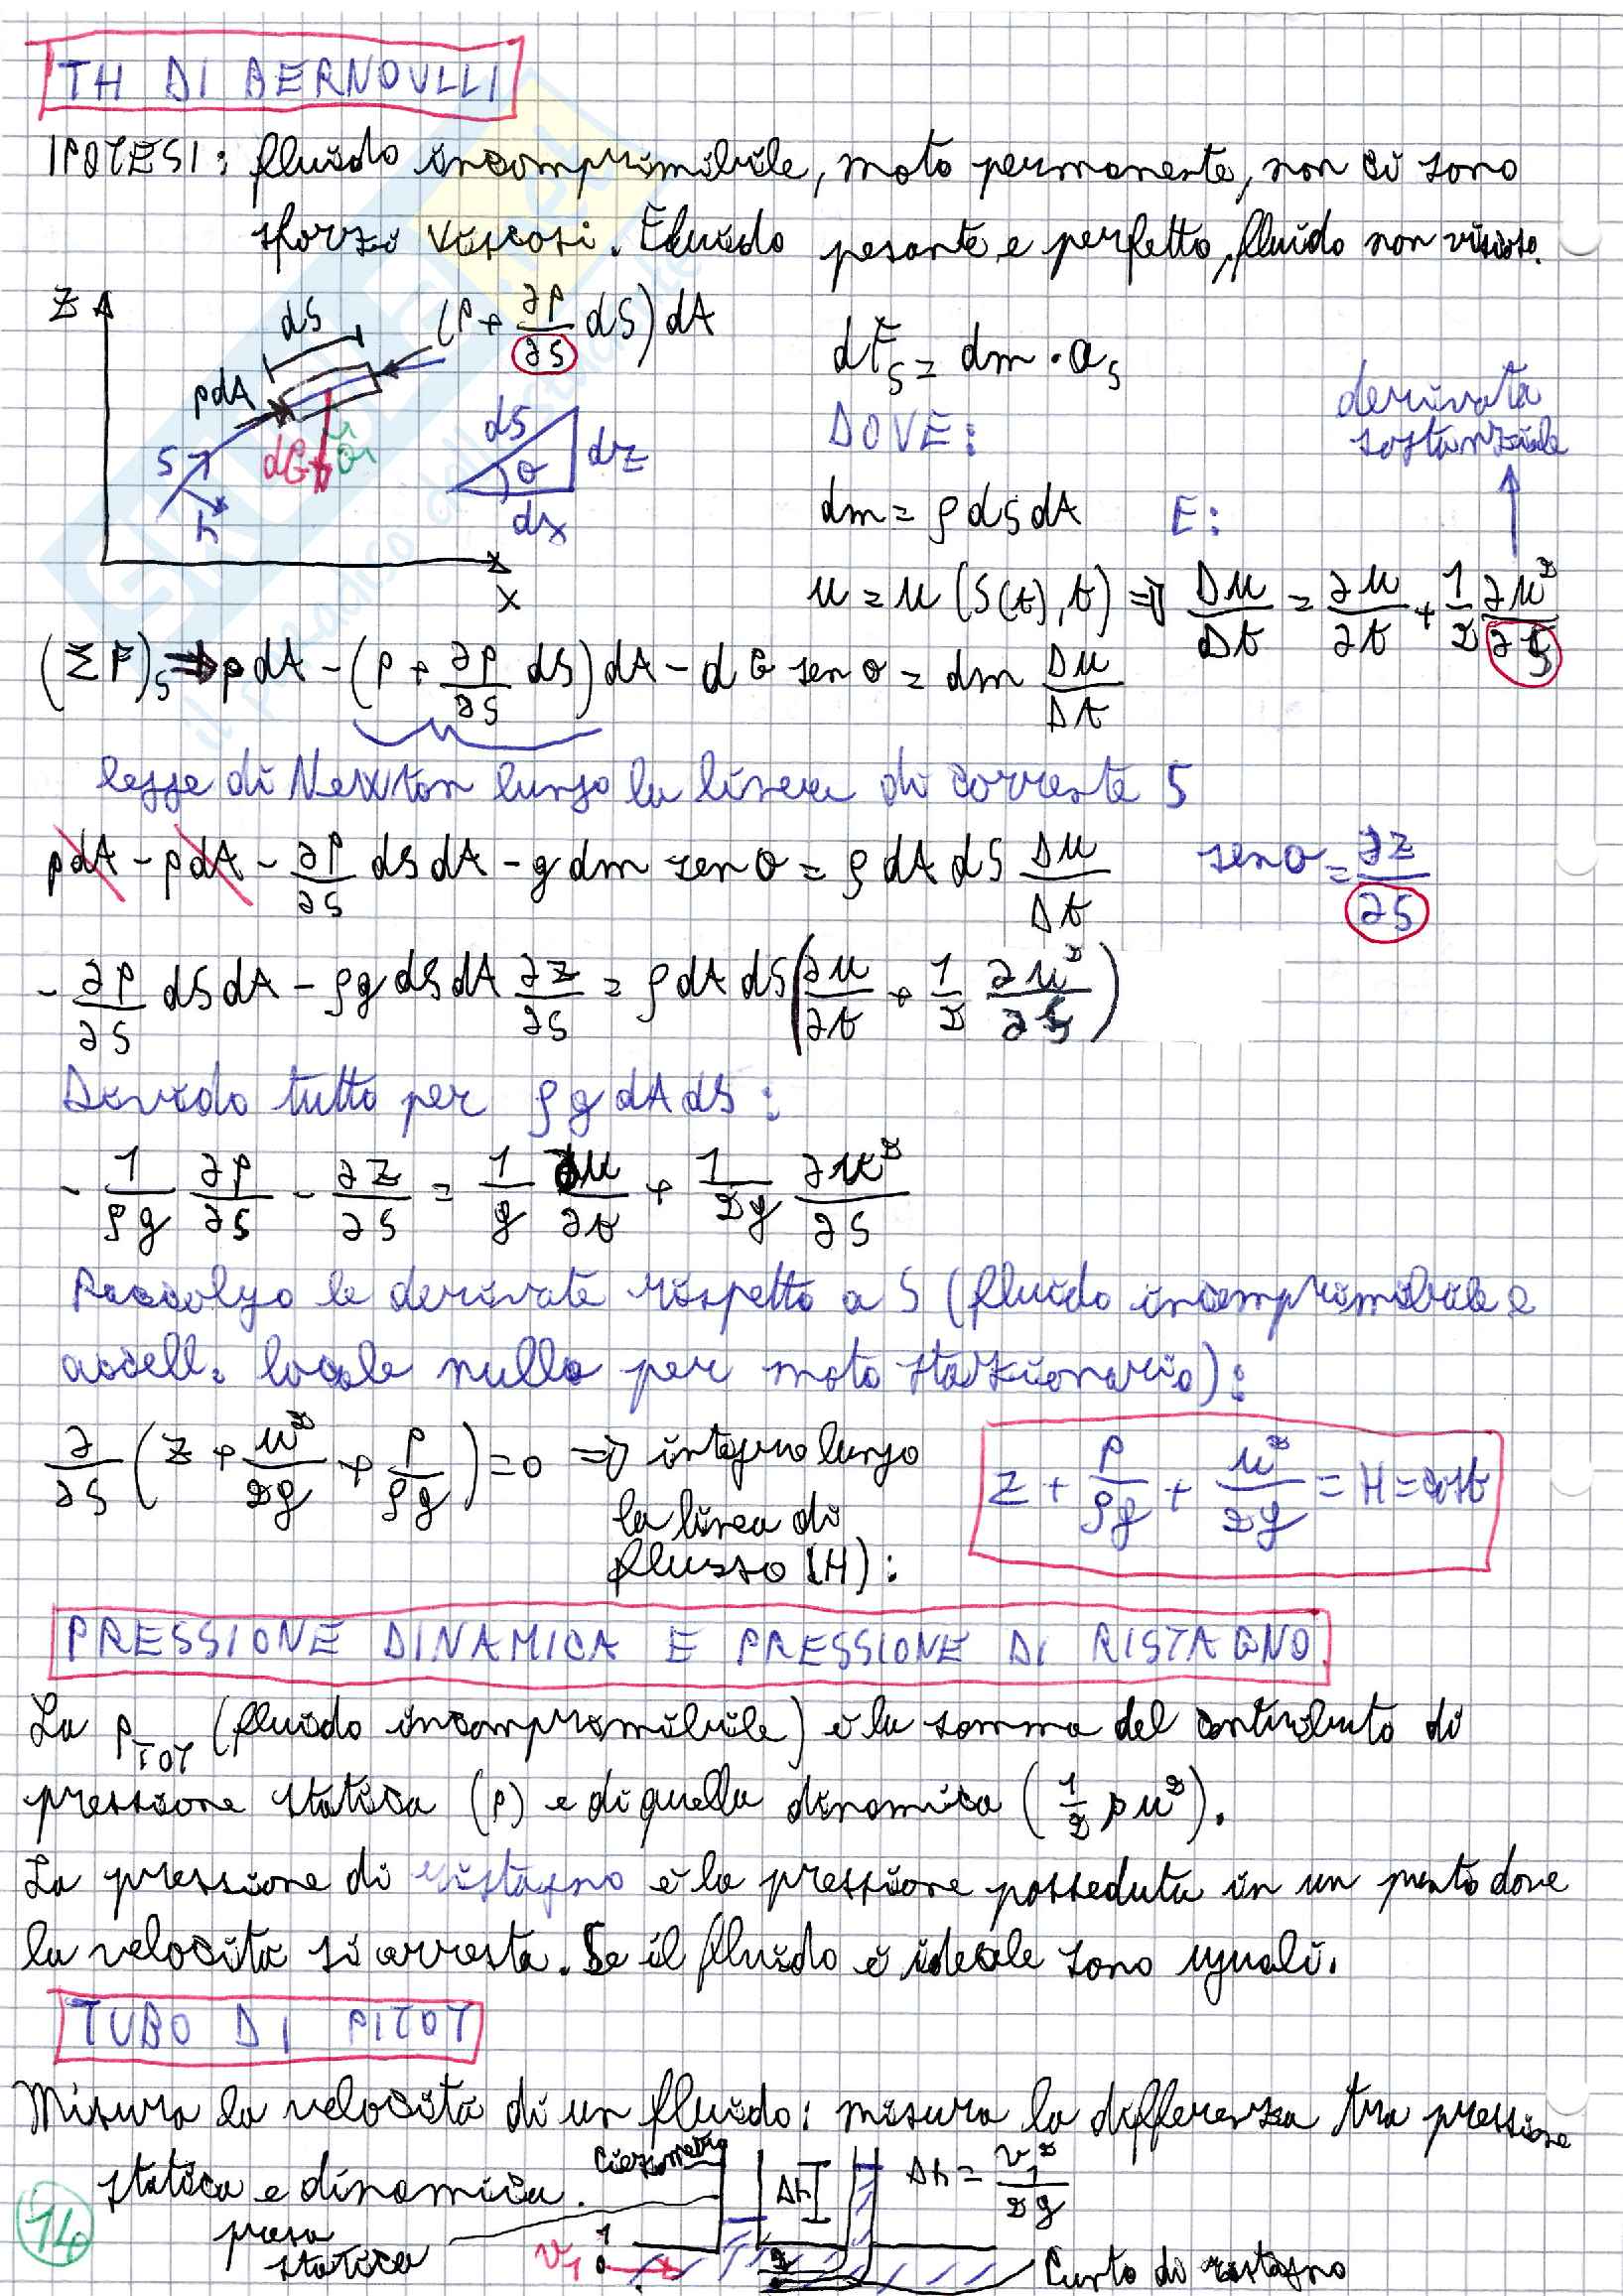 TH DI BERNOULLI
IPOTESI: fluido incomprimibile, moto permanente, non ci sono
sforzi viscosi. Fluido pesante e perfetto, fluido non viscoso.
Z
dS
(p + ∂p/∂S dS) dA
pdA
S
h
dG
θ
dS
dz
θ
dx
X
dF_S = dm · a_S
DOVE:
derivata
sostanziale
dm = ρ dS dA E:
u = u (S(t), t) ⇒ Du/Dt = ∂u/∂t + 1/2 ∂u²/∂S
(ΣF)_S ⇒ pdA - (p + ∂p/∂S dS) dA - dG senθ = dm Du/Dt
legge di Newton lungo la linea di corrente S
pdA - pdA - ∂p/∂S dS dA - g dm senθ = ρ dA dS Du/Dt senθ = ∂z/∂S
- ∂p/∂S dS dA - ρg dS dA ∂z/∂S = ρ dA dS (∂u/∂t + 1/2 ∂u²/∂S)
Divido tutto per ρ g dA dS:
- 1/ρg ∂p/∂S - ∂z/∂S = 1/g ∂u/∂t + 1/2g ∂u²/∂S
Raccolgo le derivate rispetto a S (fluido incomprimibile e
accell. locale nulla per moto stazionario):
∂/∂S (z + u²/2g + p/ρg) = 0 ⇒ integro lungo
la linea di
flusso (H):
z + p/ρg + u²/2g = H = cost
PRESSIONE DINAMICA E PRESSIONE DI RISTAGNO
La p_TOT (fluido incomprimibile) è la somma del contributo di
pressione statica (p) e di quella dinamica (1/2 ρu²).
La pressione di ristagno è la pressione posseduta in un punto dove
la velocità si arresta. Se il fluido è ideale sono uguali.
TUBO DI PITOT
Misura la velocità di un fluido: misura la differenza tra pressione
statica e dinamica.
Piezometro
Δh
Δh = v₁²/2g
presa
statica
v₁
1
2
Punto di ristagno
14